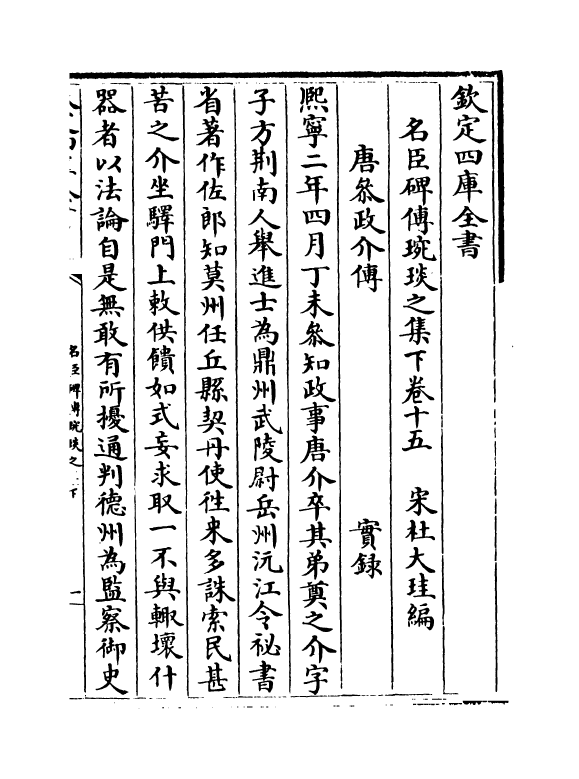 欽定四庫全書
名臣碑傳琬琰之集下卷十五 宋杜大珪編
唐叅政介傳 實録
熈寧二年四月丁未叅知政事唐介卒其弟奠之介字
子方荆南人舉進士為鼎州武陵尉岳州沅江令祕書
省著作佐郎知莫州任丘縣契丹使徃来多誅索民甚
苦之介坐驛門上敕供饋如式妄求取一不與輙壞什
器者以法論自是無敢有所擾通判德州為監察御史
名臣碑傳琬琰之集下
一